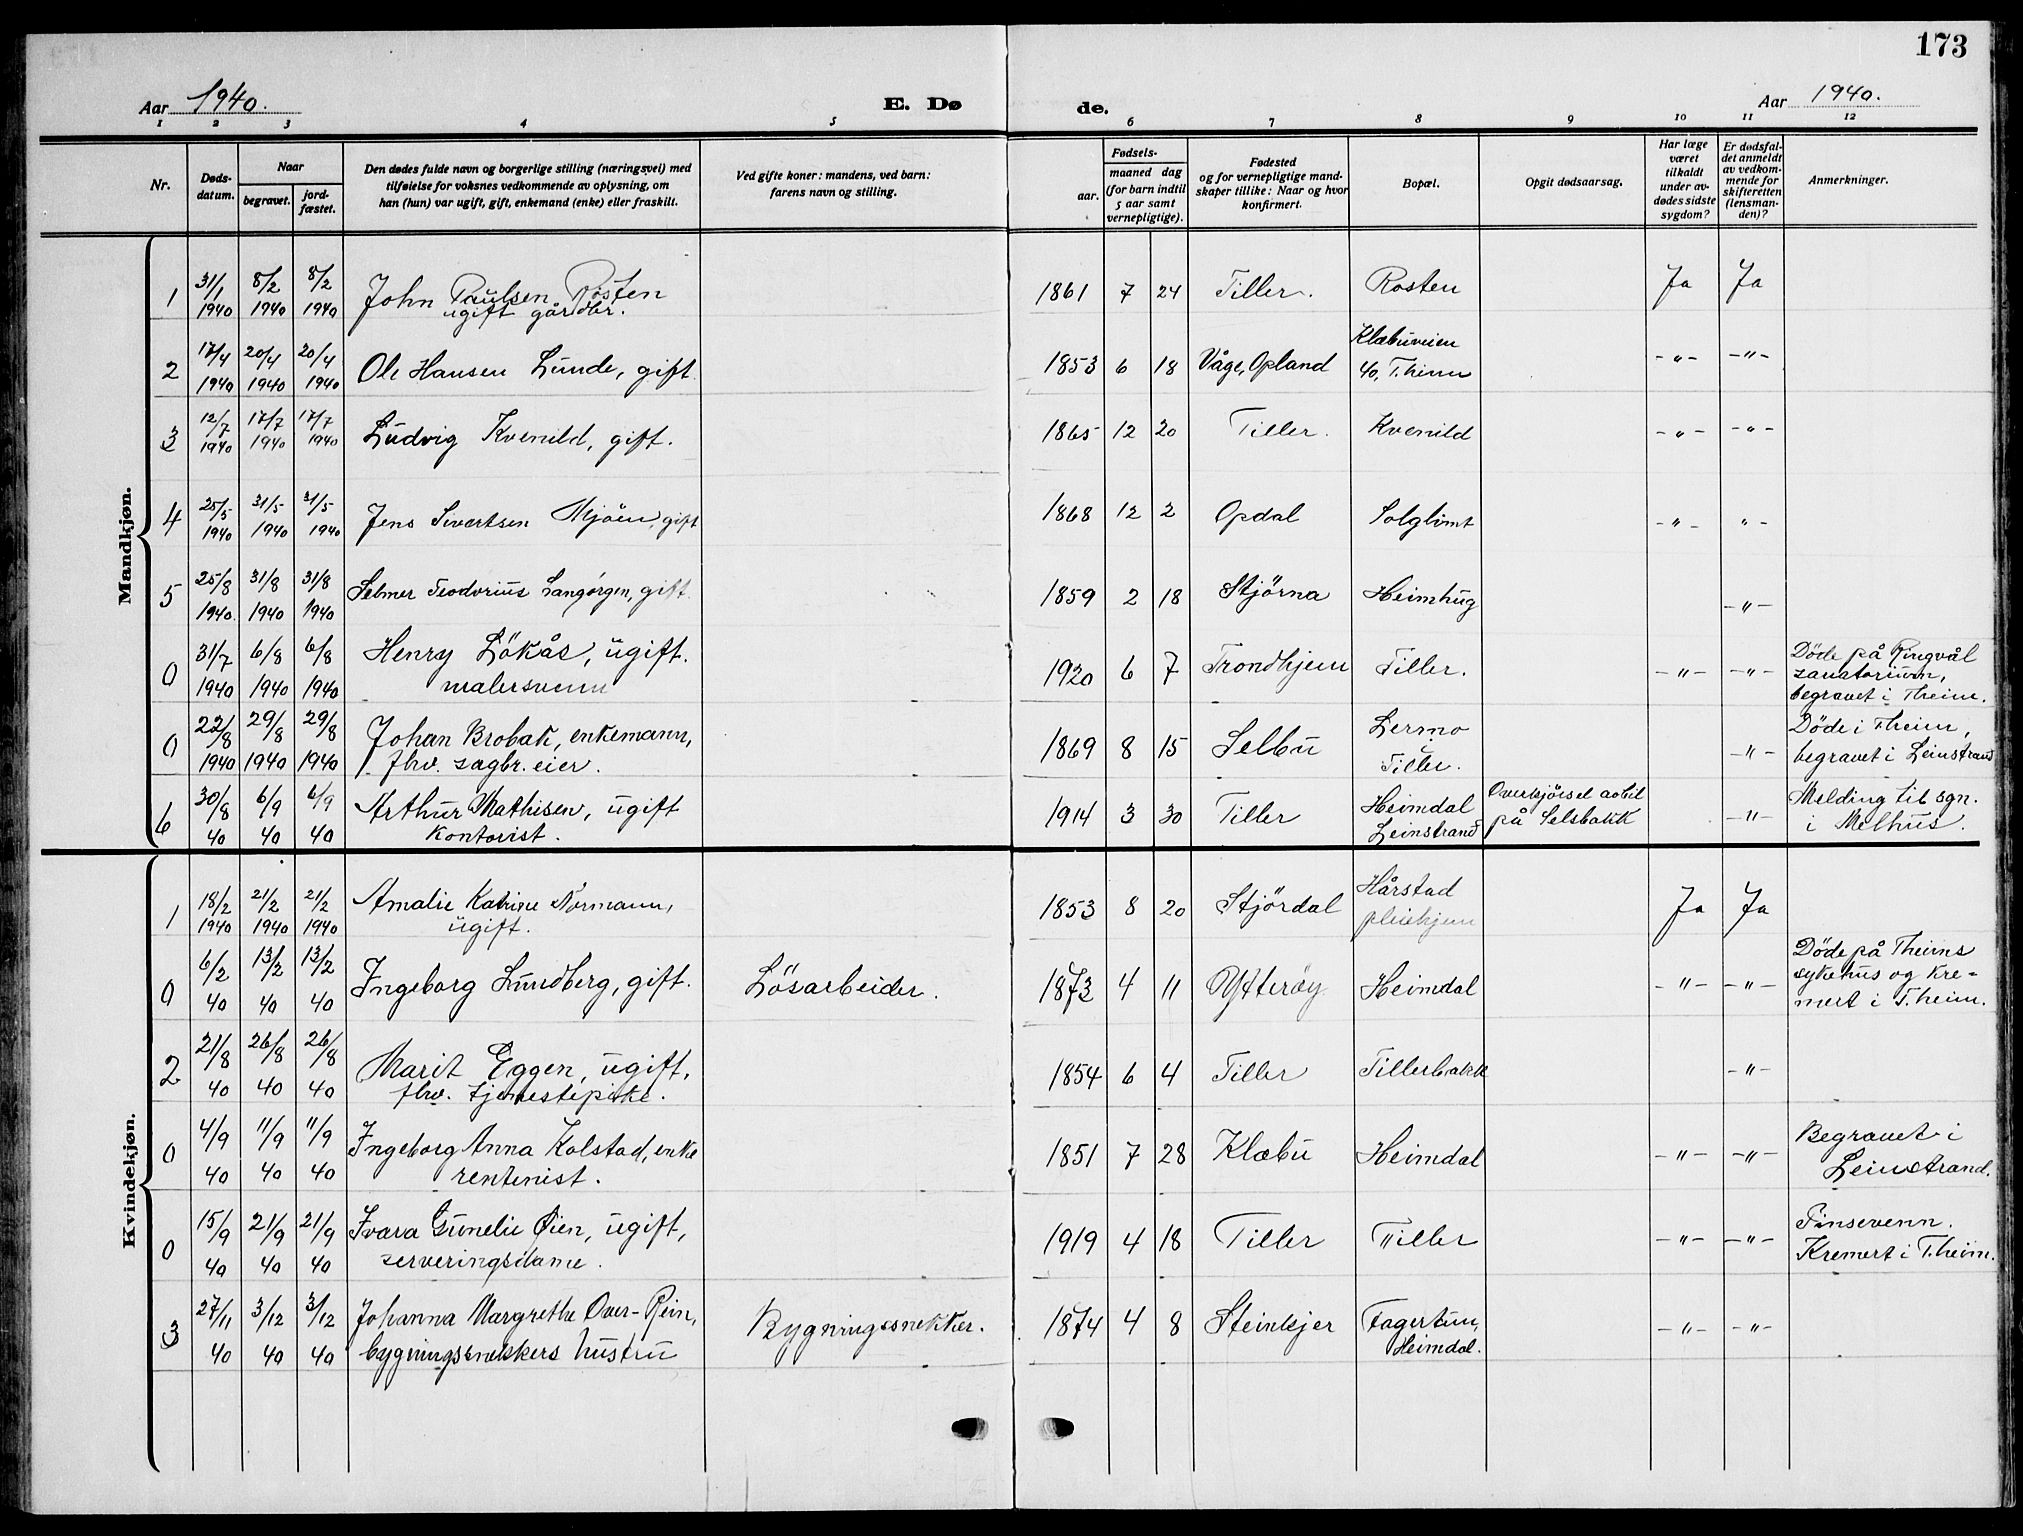 173
Aar 1940. E. Dø de. Aar 1940.
1 2 3 4 5 6 7 8 9 10 11 12
Nr. Døds-datum. Naar begravet. jord-fæstet. Den dødes fulde navn og borgerlige stilling (næringsvei) med tilføielse for voksnes vedkommende av oplysning, om han (hun) var ugift, gift, enkemand (enke) eller fraskilt. Ved gifte koner: mandens, ved barn: farens navn og stilling. Fødsels- aar. maaned dag (for barn indtil 5 aar samt vernepligtige). Fødested og for vernepligtige mand-skaper tillike: Naar og hvor konfirmert. Bopæl. Opgit dødsaarsag. Har læge været tilkaldt under av-dødes sidste sygdom? Er dødsfal-det anmeldt av vedkom-mende for skifteretten (lensman-den)? Anmerkninger.
Mandkjøn.
1 31/1 1940 8/2 1940 8/2 1940 John Paulsen Rösten ugift gårdbr. 1861 7 24 Tiller. Rosten Ja Ja
2 17/4 1940 20/4 1940 20/4 1940 Ole Hansen Lunde, gift 1853 6 18 Våge, Opland Klæbuveien 40, T.heim -"- -"-
3 12/7 1940 17/7 1940 17/7 1940 Ludvig Kvenild, gift. 1865 12 20 Tiller. Kvenild -"- -"-
4 25/5 1940 31/5 1940 31/5 1940 Jens Sivertsen Mjöen, gift 1868 12 2 Opdal Solglimt -"- "-
5 25/8 1940. 31/8 1940 31/8 1940 Selmer Teodorius Langörgen, gift. 1859 2 18 Stjörna Heimhug -"-
0 31/7 1940 6/8 1940 6/8 1940 Henry Lökås, ugift. malersvenn 1920 6 7 Trondhjem Tiller. -"- -"- Döde på Ringvål sanatorium, begravet i Theim.
0 22/8 1940 29/8 1940 29/8 1940 Johan Brobak, enkemann, fhv. sagbr. eier. 1869 8 15 Selbu Lermo Tiller. -"- Döde i Theim, begravet i Leinstrand
6 30/8 40 6/9 40 6/9 40 Arthur Mathisen, ugift kontorist. 1914 3 30 Tiller Heimdal Leinstrand Overkjörsel av bil på Selsbakk -"- Melding til sgn. i Melhus.
Kvindekjøn.
1 18/2 1940 21/2 1940 21/2 1940 Amalie Katrine Normann, ugift. 1853 8 20 Stjördal Hårstad pleiehjem Ja Ja
0 6/2 40 13/2 40 13/2 40 Ingeborg Lundberg, gift. Lösarbeider. 1873 4 11 Ytteröy Heimdal -"- -"- Döde på Theims sykehus og kre-mert i T.heim.
2 21/8 40 26/8 40 26/8 40 Marit Eggen, ugift, fhv. tjenestepike. 1854 6 4 Tiller Tillerbakk -"-
0 4/9 40 11/9 40 11/9 40 Ingeborg Anna Kolstad, enke rentenist. 1851 7 28 Klæbu Heimdal -"- -"- Begravet i Leinstrand.
0 15/9 40 21/9 40 21/9 40 Ivara Gunelie Øien, ugift, serveringsdame. 1919 4 18 Tiller Tiller -"- -"- Pinsevenn. Kremert i T.heim.
3 27/11 40 3/12 40 3/12 40 Johanna Margrethe Over-Rein, bygningssnekkers hustru Bygningssnekker. 1874 4 8 Steinkjer Fagertun, Heimdal. -"- -"-